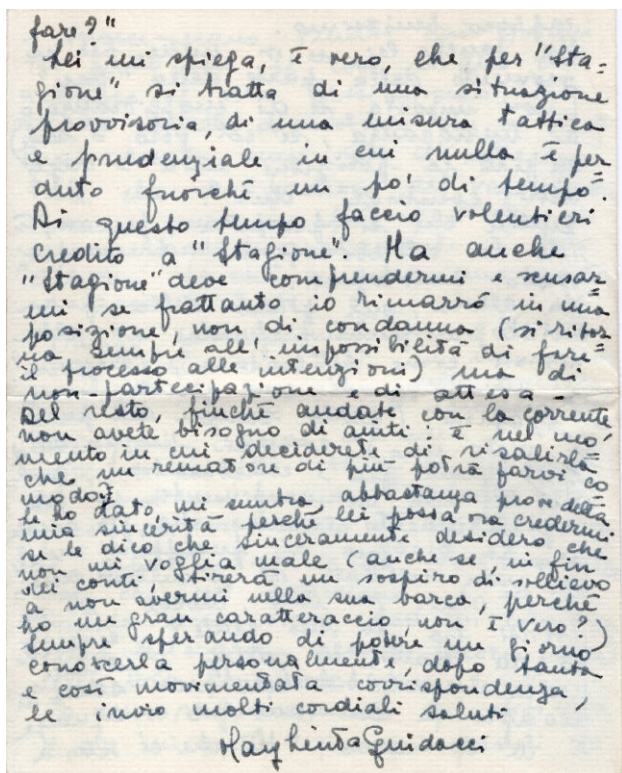 fare?"
Lei mi spiega, è vero, che per "Sta=
gione" si tratta di una situazione
provvisoria, di una misura tattica
e prudenziale in cui nulla è per=
duto fuorché un po' di tempo.
Di questo tempo faccio volentieri
credito a "Stagione". Ma anche
"Stagione" deve comprendermi e scusar=
mi se frattanto io rimarrò in una
posizione, non di condanna (si ritor=
na sempre all'impossibilità di fare
il processo alle intenzioni) ma di
non-partecipazione e di attesa -
Del resto, finché andate con la corrente
non avete bisogno di aiuti: è nel mo=
mento in cui deciderete di risalirla
che un rematore di più potrà farvi co=
modo.
Le ho dato, mi sembra, abbastanza prove della
mia sincerità perché lei possa ora credermi
se le dico che sinceramente desidero che
non mi voglia male (anche se, in fin
dei conti, tirerà un sospiro di sollievo
a non avermi nella sua barca, perché
ho un gran caratteraccio, non è vero?)
Sempre sperando di potere un giorno
conoscerla personalmente, dopo tanta
e così movimentata corrispondenza,
le invio molti cordiali saluti
Margherita Guidacci